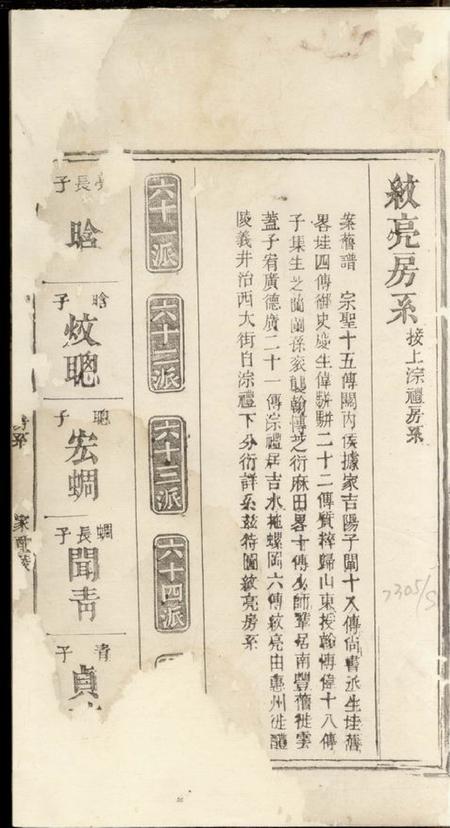 紋亮房系 接上淙禮房系
案舊譜 宗聖十五傳關內侯據家吉陽子闡十又傳尚書丞生珪舊
畧珪四傳御史慶生偉駢駢二十二傳質粹歸山東授翰博偉十八傳
子集生芝蘭闈孫衮襲翰博芝衍麻田畧十傳少師鞏居南豐舊徙雲
蓋子宥廣德廣二十一傳淙禮居吉水拖螺岡六傳紋亮由惠州徙醴
陵義井治西大街自淙禮下分衍詳系茲特圖紋亮房系
六十一派
六十二派
六十三派
六十四派
長子 晗
晗子 炆聰
聰子 宏蜩
蜩長子 聞青
青子 貞
房系